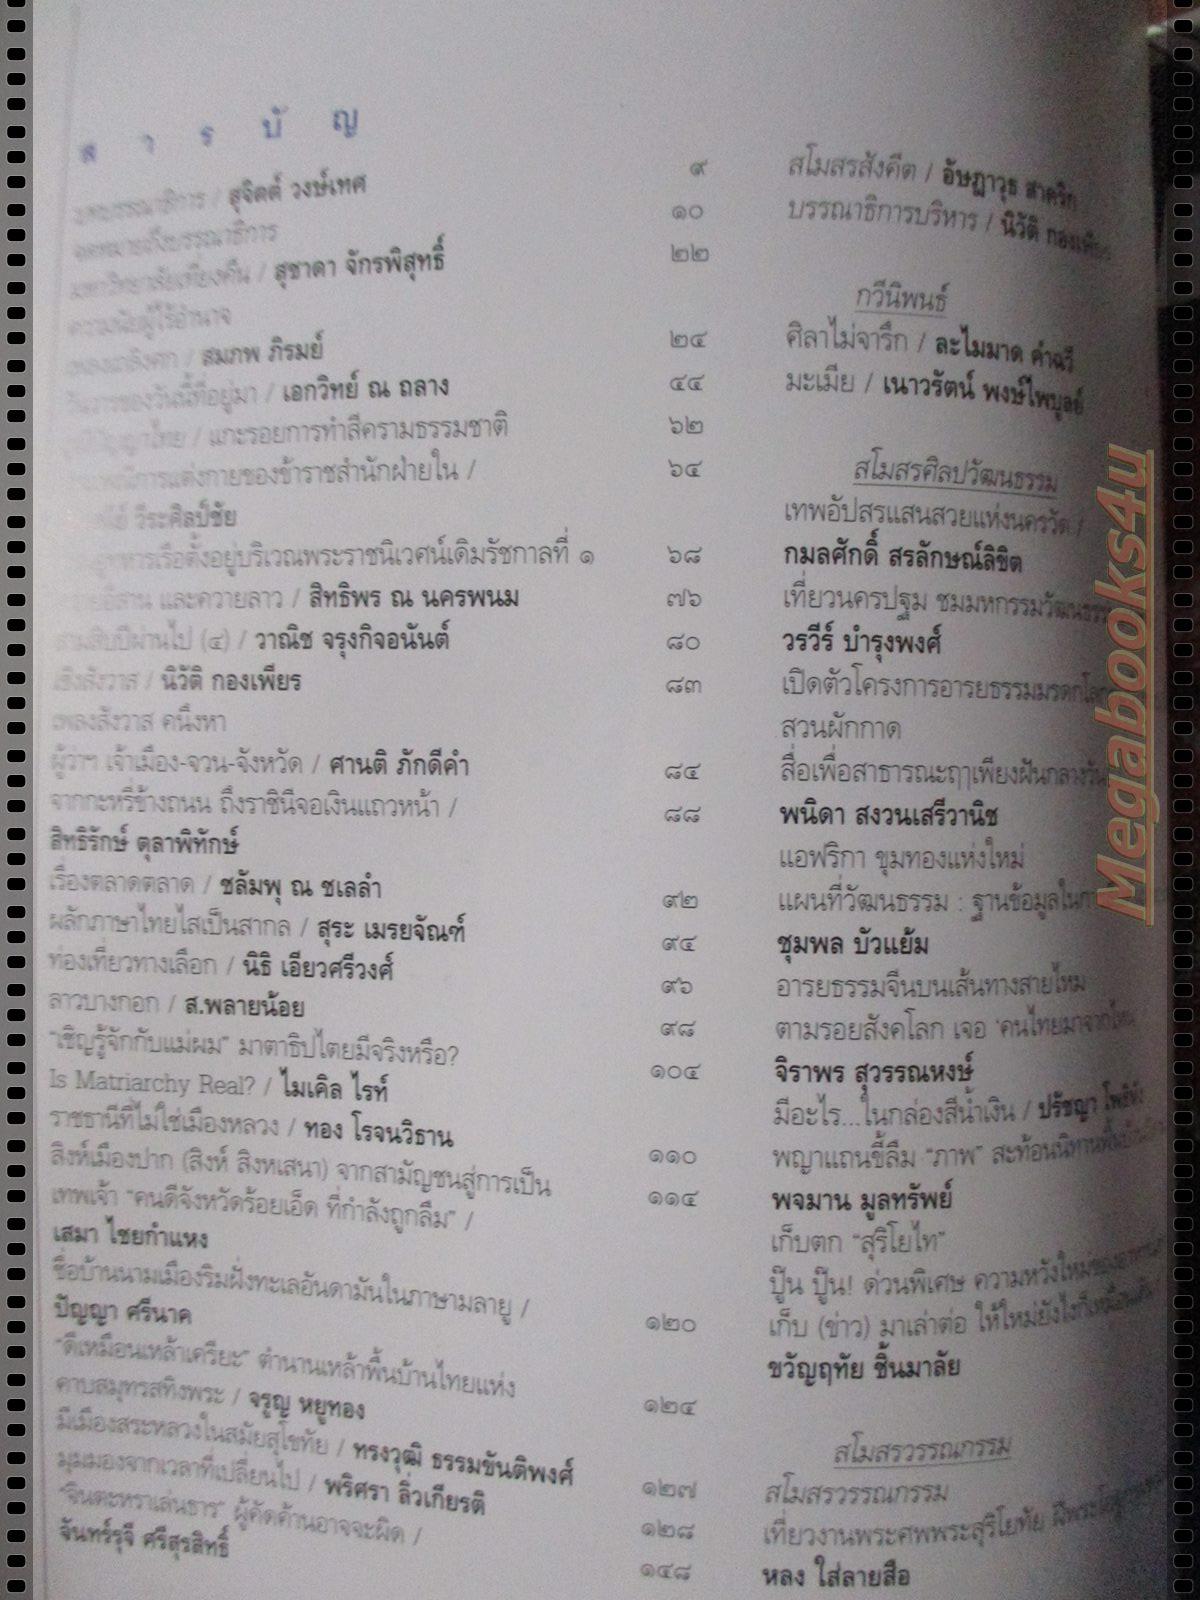 สารบัญ
บทบรรณาธิการ / สุจิตต์ วงษ์เทศ
จดหมายถึงบรรณาธิการ
มหาวิทยาลัยเที่ยงคืน / สุชาดา จักรพิสุทธิ์
ความนัยผู้ไร้อำนาจ
/ สมภพ ภิรมย์
วันวารของวันนี้ที่อยู่มา / เอกวิทย์ ณ ถลาง
ภูมิปัญญาไทย / แกะรอยการทำสีครามธรรมชาติ
การแต่งกายของข้าราชสำนักฝ่ายใน /
วีระศิลป์ชัย
ทหารเรือตั้งอยู่บริเวณพระราชนิเวศน์เดิมรัชกาลที่ ๑
และควายลาว / สิทธิพร ณ นครพนม
สามสิบปีผ่านไป (๔) / วาณิช จรุงกิจอนันต์
เชิงสังวาส / นิวัติ กองเพียร
เพลงสังวาส คนึงหา
ผู้ว่าฯ เจ้าเมือง-จวน-จังหวัด / ศานติ ภักดีคำ
จากกะหรี่ข้างถนน ถึงราชินีจอเงินแถวหน้า /
สิทธิรักษ์ ตุลาพิทักษ์
เรื่องตลาดตลาด / ชลัมพุ ณ ชเลลำ
ผลักภาษาไทยไสเป็นสากล / สุระ เมรยจัณฑ์
ท่องเที่ยวทางเลือก / นิธิ เอียวศรีวงศ์
ลาวบางกอก / ส.พลายน้อย
"เชิญรู้จักกับแม่ผม" มาตาธิปไตยมีจริงหรือ?
Is Matriarchy Real? / ไมเคิล ไรท์
ราชธานีที่ไม่ใช่เมืองหลวง / ทอง โรจนวิธาน
สิงห์เมืองปาก (สิงห์ สิงหเสนา) จากสามัญชนสู่การเป็น
เทพเจ้า "คนดีจังหวัดร้อยเอ็ด ที่กำลังถูกลืม" /
เสมา ไชยกำแหง
ชื่อบ้านนามเมืองริมฝั่งทะเลอันดามันในภาษามลายู /
ปัญญา ศรีนาค
"ดีเหมือนเหล้าเครียะ" ตำนานเหล้าพื้นบ้านไทยแห่ง
คาบสมุทรสทิงพระ / จรูญ หยูทอง
มีเมืองสระหลวงในสมัยสุโขทัย / ทรงวุฒิ ธรรมขันติพงศ์
มุมมองจากเวลาที่เปลี่ยนไป / พริศรา ลิ่วเกียรติ
"จินตะหราเล่นธาร" ผู้คัดค้านอาจจะผิด /
จันทร์รุจี ศรีสุรสิทธิ์
๙
๑๐
๒๒
๒๔
๔๔
๖๒
๖๔
๖๘
๗๖
๘๐
๘๓
๘๔
๘๘
๙๒
๙๔
๙๖
๙๘
๑๐๔
๑๑๐
๑๑๔
๑๒๐
๑๒๔
๑๒๗
๑๒๘
๑๔๘
สโมสรสังคีต / อัษฎาวุธ สาคริก
บรรณาธิการบริหาร / นิวัติ กองเพียร
กวีนิพนธ์
ศิลาไม่จารึก / ละไมมาด คำฉวี
มะเมีย / เนาวรัตน์ พงษ์ไพบูลย์
สโมสรศิลปวัฒนธรรม
เทพอัปสรแสนสวยแห่งนครวัด /
กมลศักดิ์ สรลักษณ์ลิขิต
เที่ยวนครปฐม ชมมหกรรมวัฒนธรรม
วรวีร์ บำรุงพงศ์
เปิดตัวโครงการอารยธรรมมรดกโลก
สวนผักกาด
สื่อเพื่อสาธารณะฤๅเพียงฝันกลางวัน
พนิดา สงวนเสรีวานิช
แอฟริกา ขุมทองแห่งใหม่
แผนที่วัฒนธรรม : ฐานข้อมูลใน
ชุมพล บัวแย้ม
อารยธรรมจีนบนเส้นทางสายไหม
ตามรอยสังคโลก เจอ 'คนไทยมาจากไหน
จิราพร สุวรรณหงษ์
มีอะไร...ในกล่องสีน้ำเงิน / ปรัชญา โพธิหัง
พญาแถนขี้ลืม "ภาพ" สะท้อนนิทานพื้นบ้าน
พจมาน มูลทรัพย์
เก็บตก "สุริโยไท"
ปู๊น ปู๊น! ด่วนพิเศษ ความหวังใหม่ของ
เก็บ (ข่าว) มาเล่าต่อ ให้ใหม่ยังไงก็เหมือนเดิม
ขวัญฤทัย ชิ้นมาลัย
สโมสรวรรณกรรม
สโมสรวรรณกรรม
เที่ยวงานพระศพพระสุริโยทัย
หลง ใส่ลายสือ
Megabooks4u